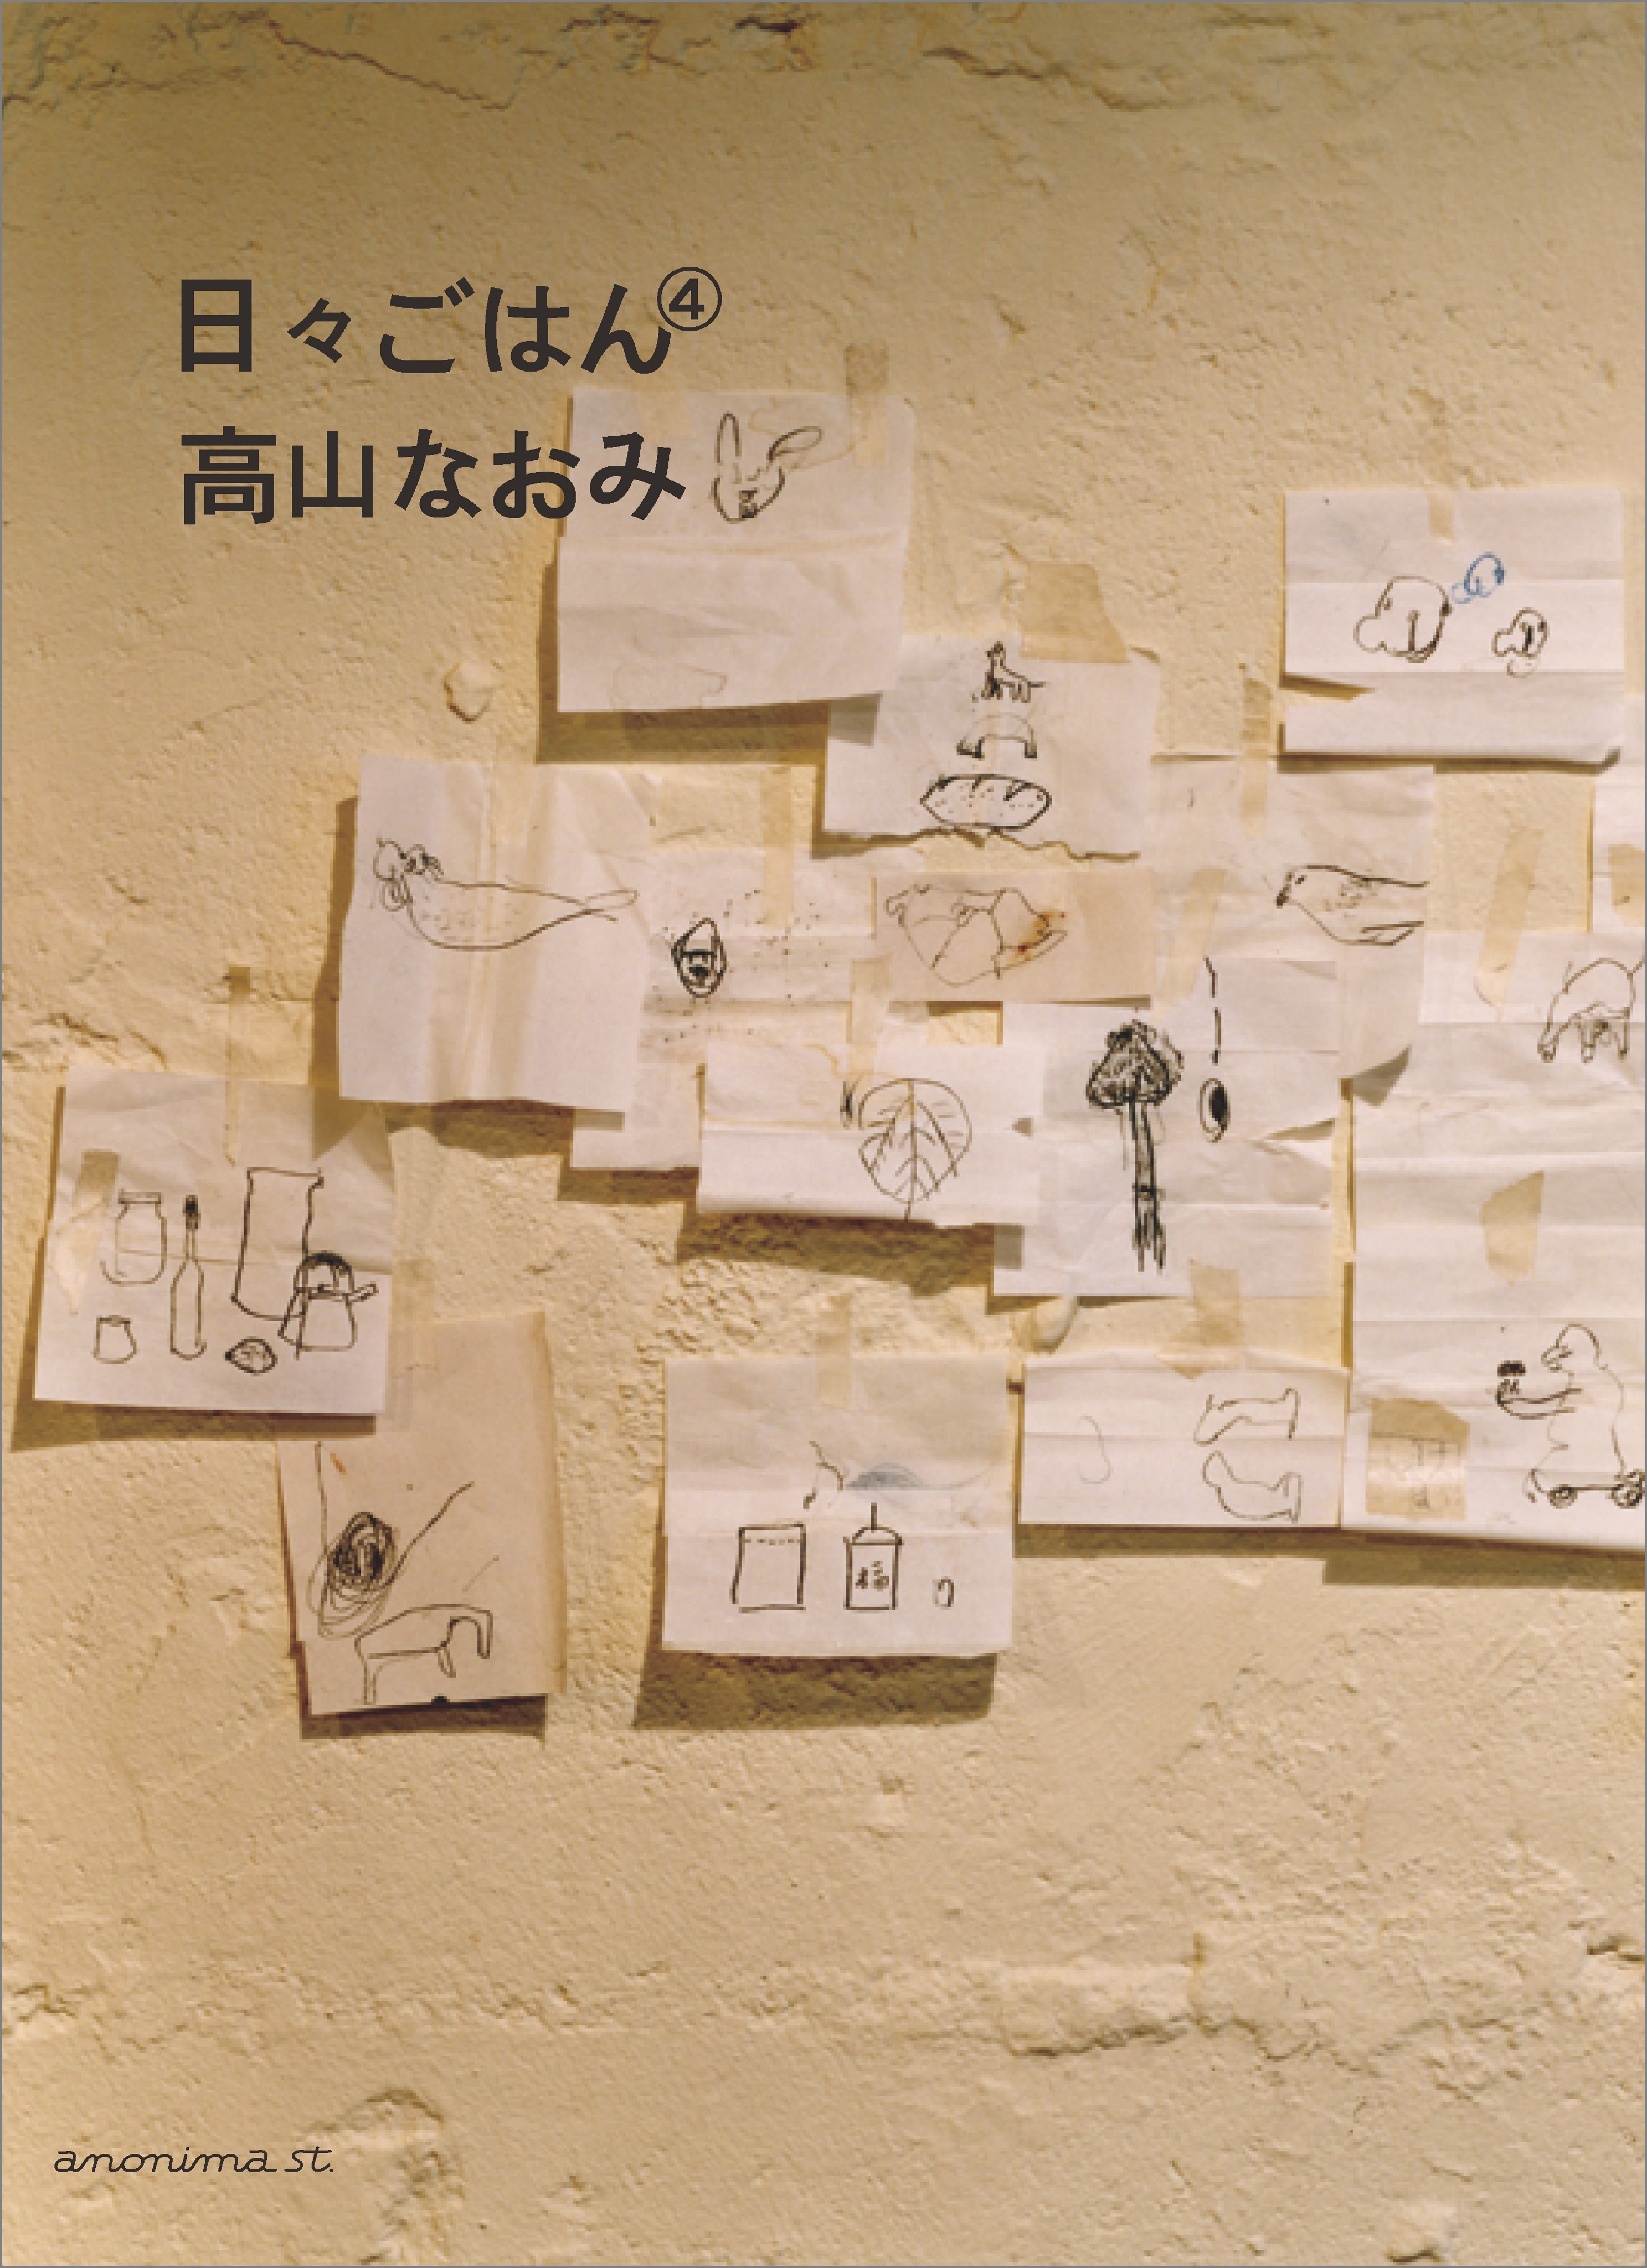 日々ごはん④
高山なおみ
福
anonima st.